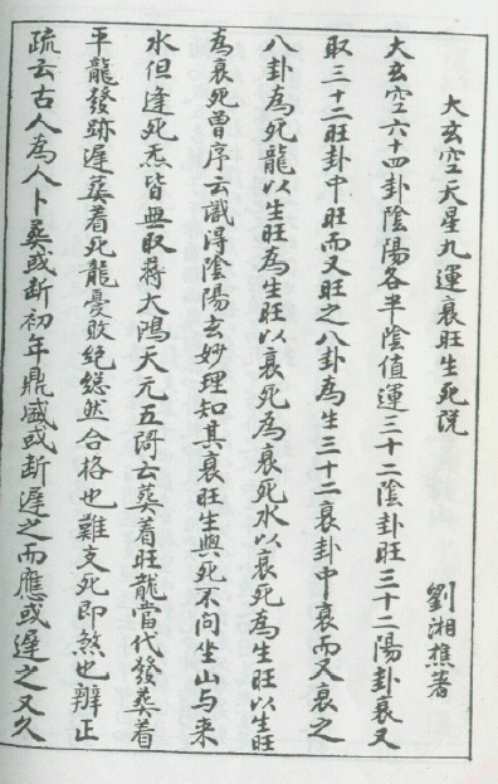 大玄空天星九運衰旺生死說
劉湘樵著
大玄空六十四卦陰陽各半陰值運三十二陰卦旺三十二陽卦衰又
取三十二旺卦中旺而又旺之八卦為生三十二衰卦中衰而又衰之
八卦為死龍以生旺為生旺以衰死為衰死水以衰死為生旺以生旺
為衰死曾序云識得陰陽玄妙理知其衰旺生與死不问坐山与来
水但逢死炁皆無取蔣大鴻天元五謌云葬着旺龍當代發葬着
平龍發跡遲葬着死龍憂敗絕縂然合格也難支死即煞也辨正
疏云古人為人卜葬或断初年鼎盛或断遲之而應或遲之又久